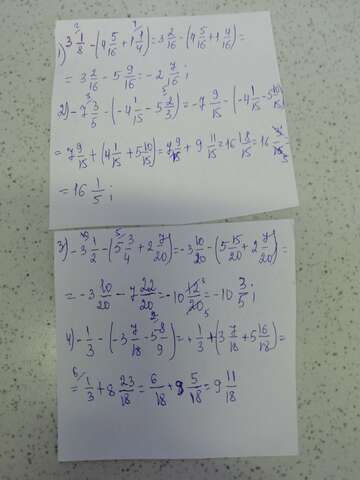 1) 3 1/8 - (4 5/16 + 1 1/4) = 3 2/16 - (4 5/16 + 1 4/16) =
= 3 2/16 - 5 9/16 = -2 7/16;
2) -7 3/5 - (-4 1/15 - 5 2/3) = -7 9/15 - (-4 1/15 - 5 10/15)
= 7 9/15 + (4 1/15 + 5 10/15) = 7 9/15 + 9 11/15 = 16 18/15 = 16
= 16 1/5;
3) -3 1/2 - (5 3/4 + 2 7/20) = -3 10/20 - (5 15/20 + 2 7/20) =
= -3 10/20 - 7 22/20 = -10 12/20 = -10 3/5;
4) -1/3 - (-3 7/18 - 5 8/9) = +1/3 + (3 7/18 + 5 16/18) =
= 1/3 + 8 23/18 = 6/18 + 9 5/18 = 9 11/18